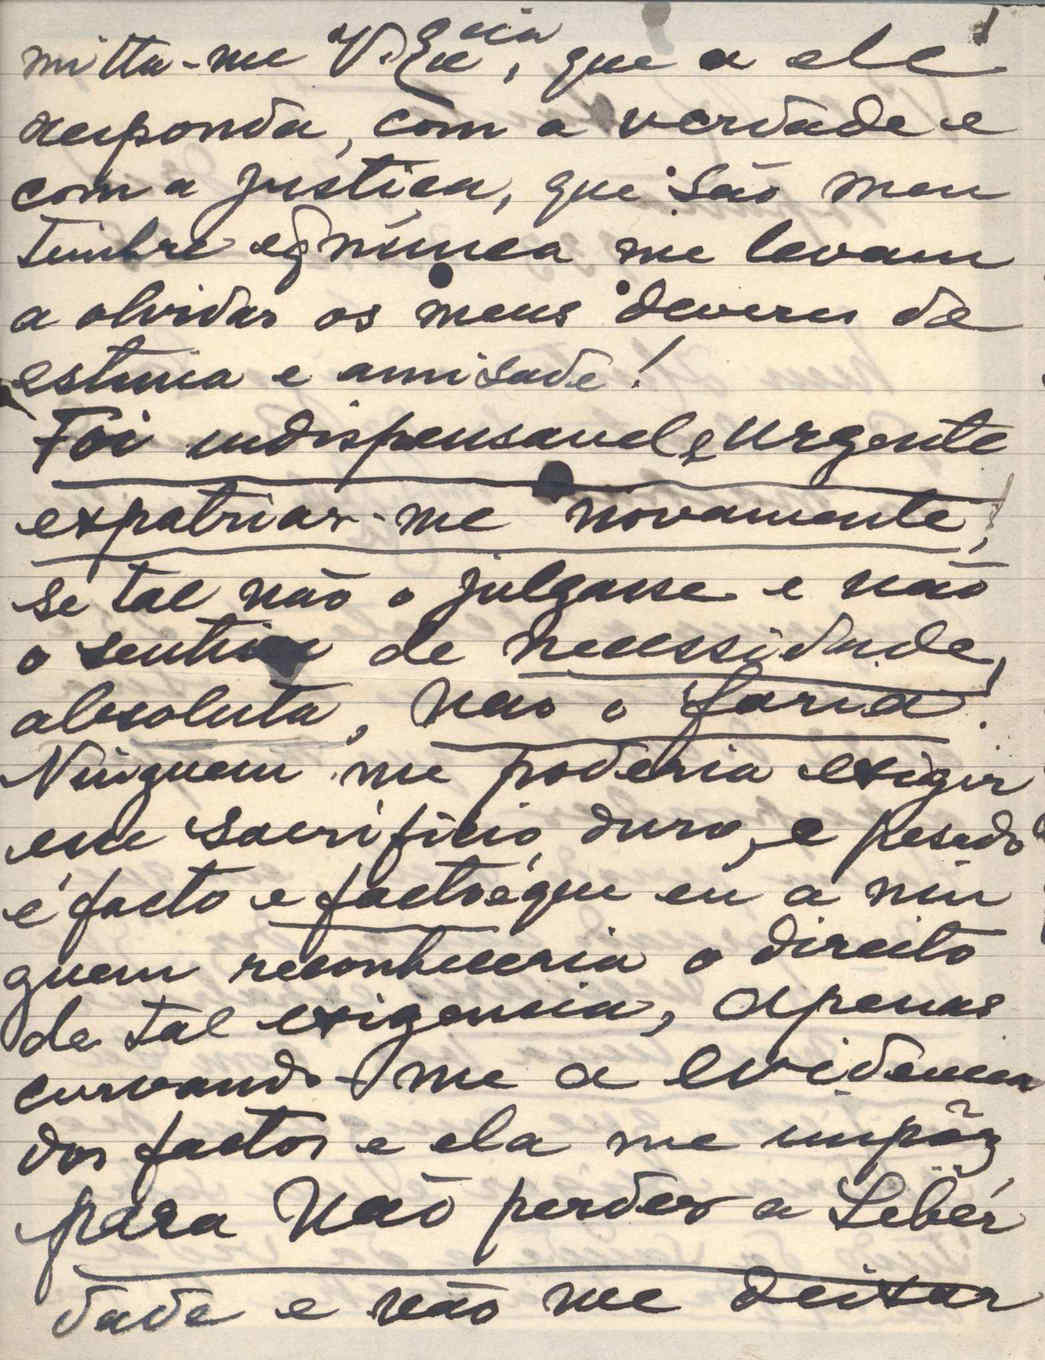 mitta-me V. Excia, que a ele
responda, com a verdade e
com a justiça, que são meu
timbre e q nunca me levam
a olvidar os meus deveres de
estima e amisade!
Foi indispensavel e urgente
expatriar-me novamente;
se tal não o julgasse e não
o sentisse de necessidade,
absoluta, não o faria.
Ninguem me poderia exigir
esse sacrificio, duro, e pesado
é facto e facto é que eu a nin
guem reconheceria o direito
de tal exigencia, apenas
curvando-me a evidencia
dos factos e ela me impôz
para não perder a Liber
dade e não me deixar